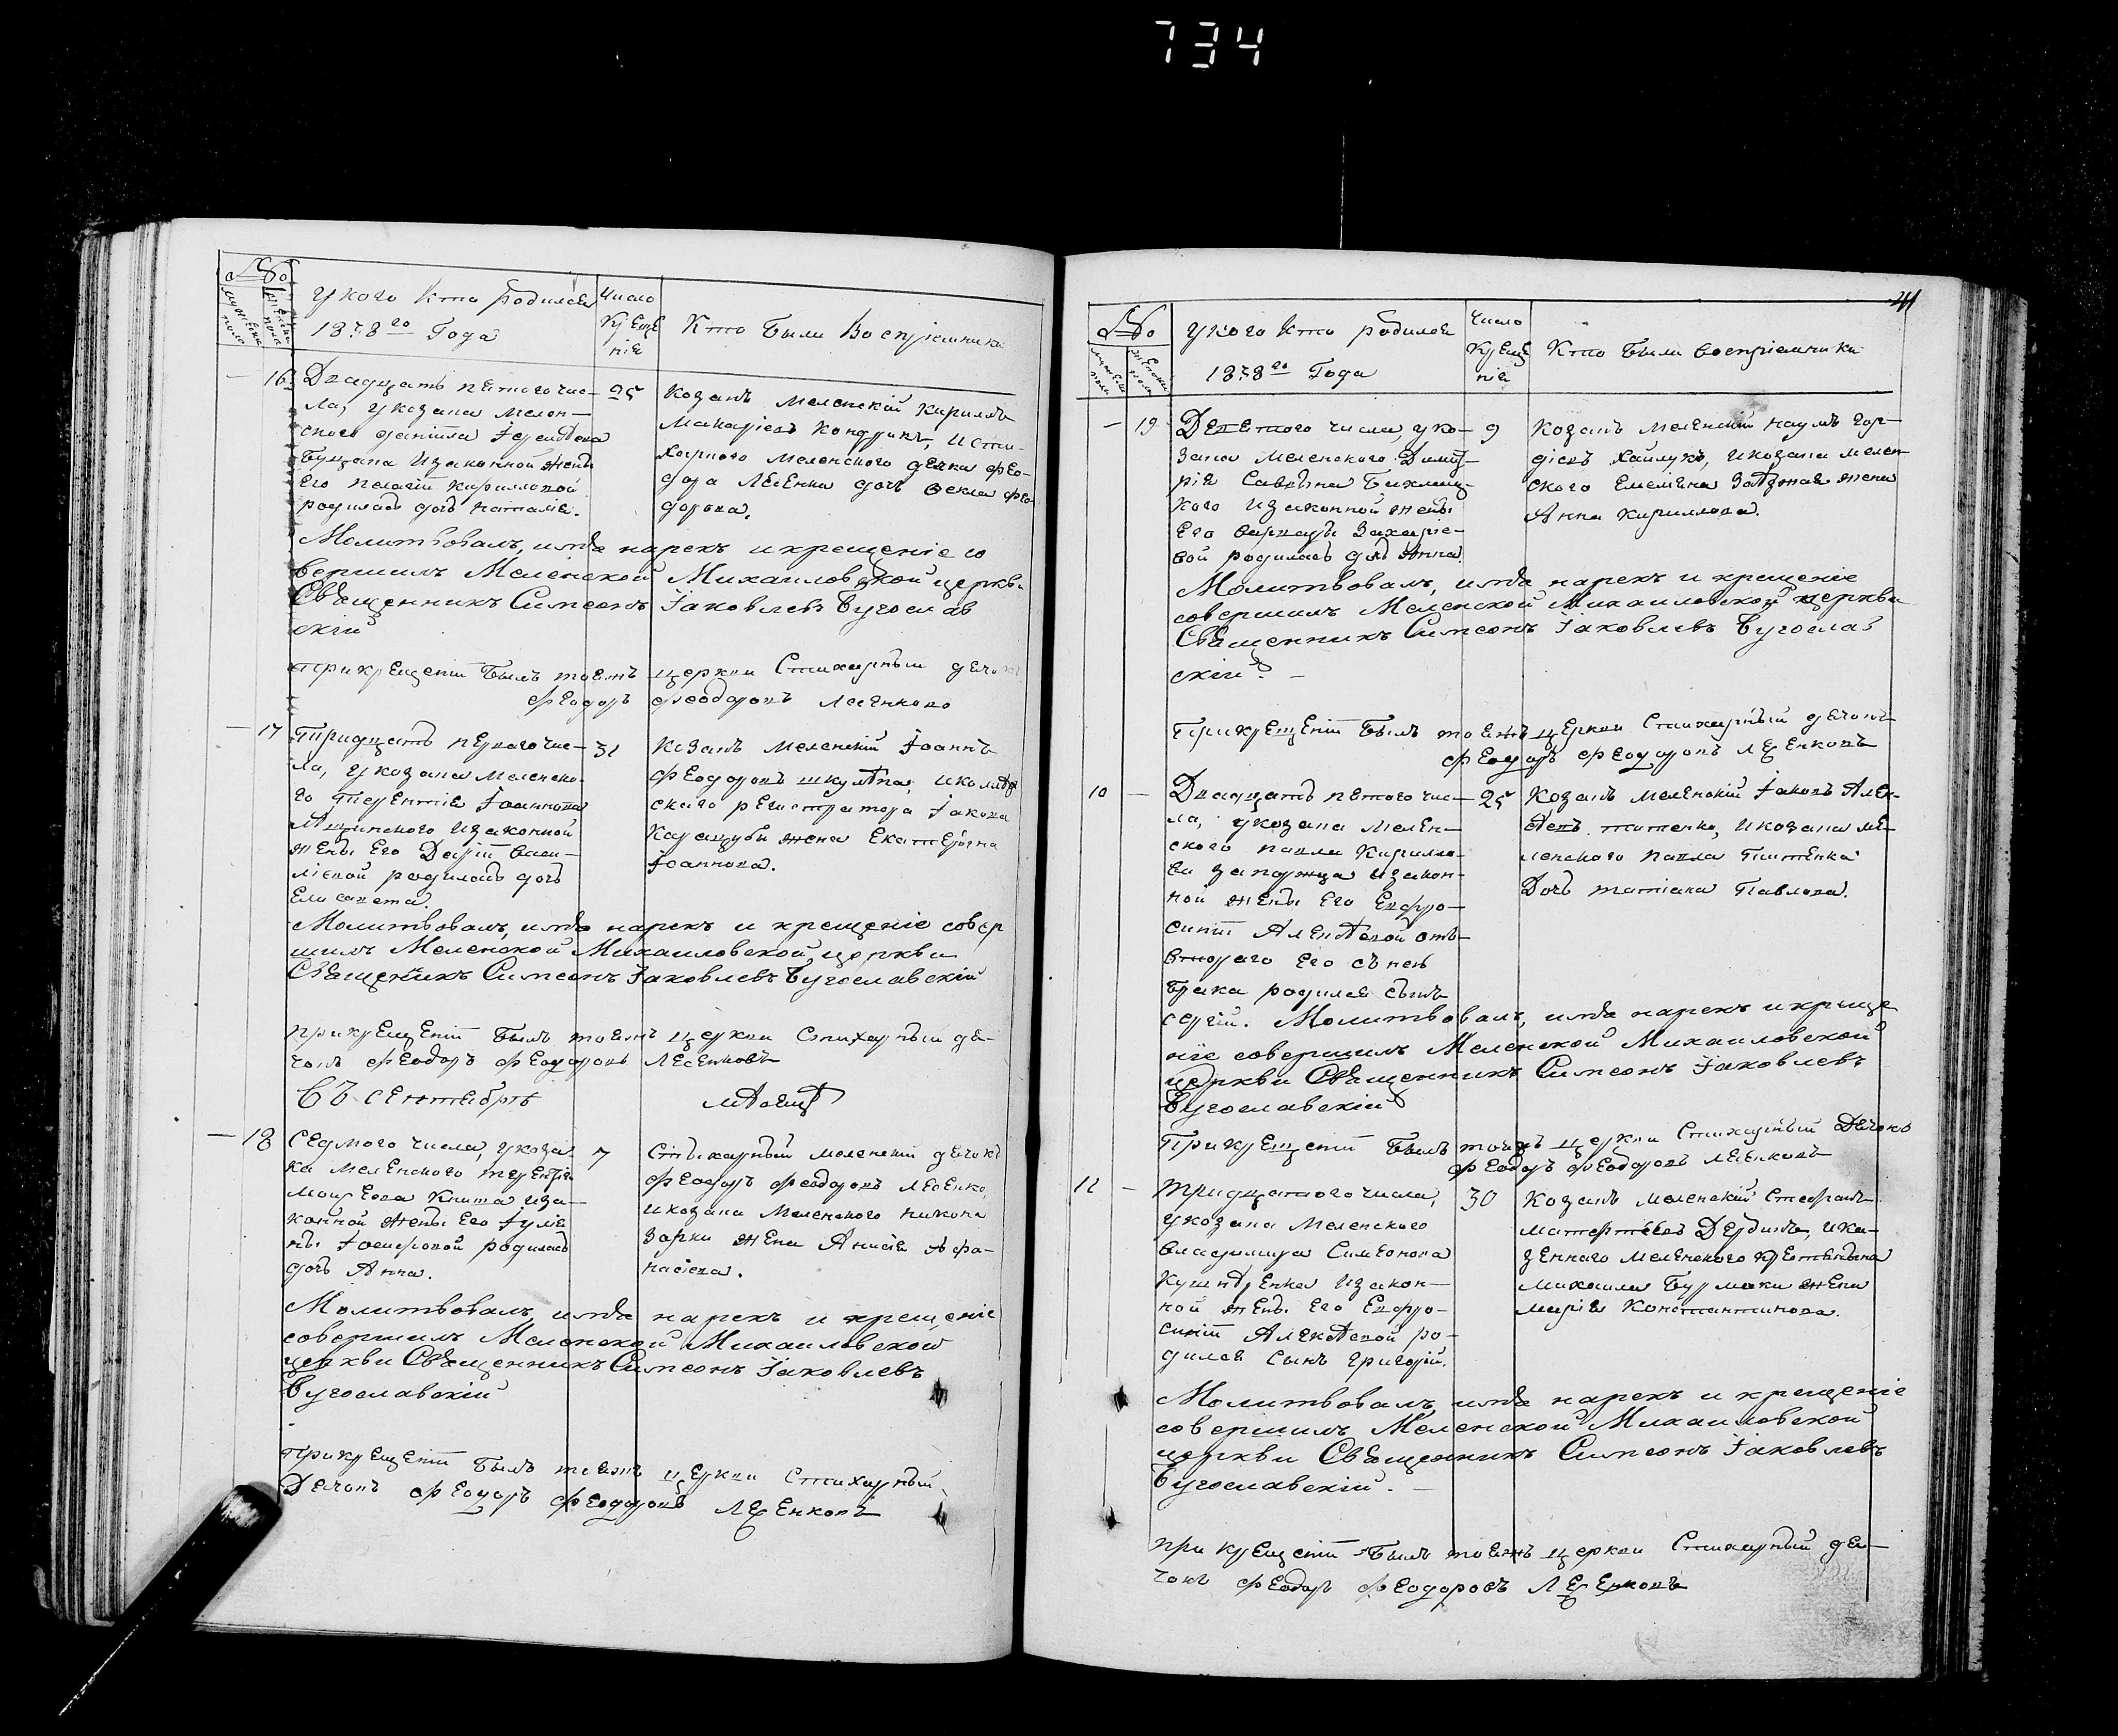 734
№
мужеска пола
женска пола
У кого кто родился
1828го Года
Число
Крещенія
Кто были Воспріемники
16
Двадцять пятого чис-
ла, у козака мелен-
ского
его Пелагіи Кирилловой
родилась дочь Наталія.
25
Козакъ Меленскій Кириллъ
Макаріевъ Кондрикъ, и сти-
харного Меленского дячка Фео-
дора Лесенка дочь Фекла Фео-
дорова.
Молитвовалъ, имя нарекъ и крещеніе со
вершилъ Меленской Михаиловской церкви
Священникъ Симеонъ Іаковлевъ Бугослав
скій
При крещеніи былъ тоежъ церкви Стихарный дячокъ
Феодоръ Феодоровъ Лесенковъ
17
Тридцять первого чис-
ла, у козака Меленско-
го Терентія Іоаннова
изаконной
жены его Даріи Васи-
ліевой родилась дочь
Елисавета.
31
Козакъ Меленскій Іоаннъ
Феодоровъ Шкулѣпа, и
ского регистратора Іакова
жена Екатерина
Іоаннова.
Молитвовалъ, имя нарекъ и крещеніе совер
шилъ Меленской Михаиловской церкви
Священникъ Симеонъ Іаковлевъ Бугославскій
При крещеніи былъ тоежъ церкви Стихарный дя-
чокъ Феодоръ Феодоровъ Лесенковъ
Въ Сентябрѣ
мѣсяцѣ
18
Седмого числа, у коза
ка Меленского Терентія
иза-
конной жены его Іуліа
ны Іосифовой родилась
дочь Анна.
7
Стихарный меленскій дячокъ
Феодоръ Феодоровъ Лесенко,
и козака Меленского Никона
Зарки жена Анисія Афа-
насіева.
Молитвовалъ имя нарекъ и крещеніе
совершилъ Меленской Михаиловской
церкви Священникъ Симеонъ Іаковлевъ
Бугославскій
При крещеніи былъ тоежъ церкви Стихарный
Дячокъ Феодоръ Феодоровъ Лесенковъ
41
№
мужеска пола
женска пола
У кого кто родился
1828го Года
Число
Крещенія
Кто были воспріемники
19
Девятого числа, у ко-
зака Меленского Димит-
рія Саввина
кого изаконной жены
его Варвары Захаріе-
вой родилась дочь Анна.
9
Козакъ Меленскій Наумъ Гор-
діевъ Хайлукъ, и козака мелен-
ского Емеліана жена
Анна Кириллова.
Молитвовалъ, имя нарекъ и крещеніе
совершилъ Меленской Михаиловской церкви
Священникъ Симеонъ Іаковлевъ Бугослав
скій.
При крещеніи былъ тоежъ церкви Стихарный дячокъ
Феодоръ Феодоровъ Лесенковъ
10
Двадцять пятого чис-
ла, у козака мелен-
ского Павла Кирилло-
ва Запорожца изакон-
ной жены его Евфро-
синіи Алексѣевой отъ
втораго его съ нею
брака родился сынъ
Сергій.
25
Козакъ меленскій Іаковъ Алек-
сѣевъ Титенко, и козака ме-
ленского Павла Титенка
Дочь Татіана Павлова.
Молитвовалъ, имя нарекъ и креще
ніе совершилъ Меленской Михаиловской
церкви Священникъ Симеонъ Іаковлевъ
Бугославскій
При крещеніи былъ тоежъ церкви Стихарный Дячокъ
Феодоръ Феодоровъ Лесенковъ
11
Тридцятого числа,
у козака Меленского
Владимира Симеонова
изакон-
ной жены его Евфро-
синіи Алексѣевой ро-
дился сынъ Григорій.
30
Козакъ меленскій Стефанъ
и ка-
зенного меленского крестянина
Михаила Бурмаки жена
Марія Константинова.
Молитвовалъ имя нарекъ и крещеніе
совершилъ Меленской Михаиловской
церкви Священникъ Симеонъ Іаковлевъ
Бугославскій.
При крещеніи былъ тоежъ церкви Стихарный дя-
чокъ Феодоръ Феодоровъ Лесенковъ